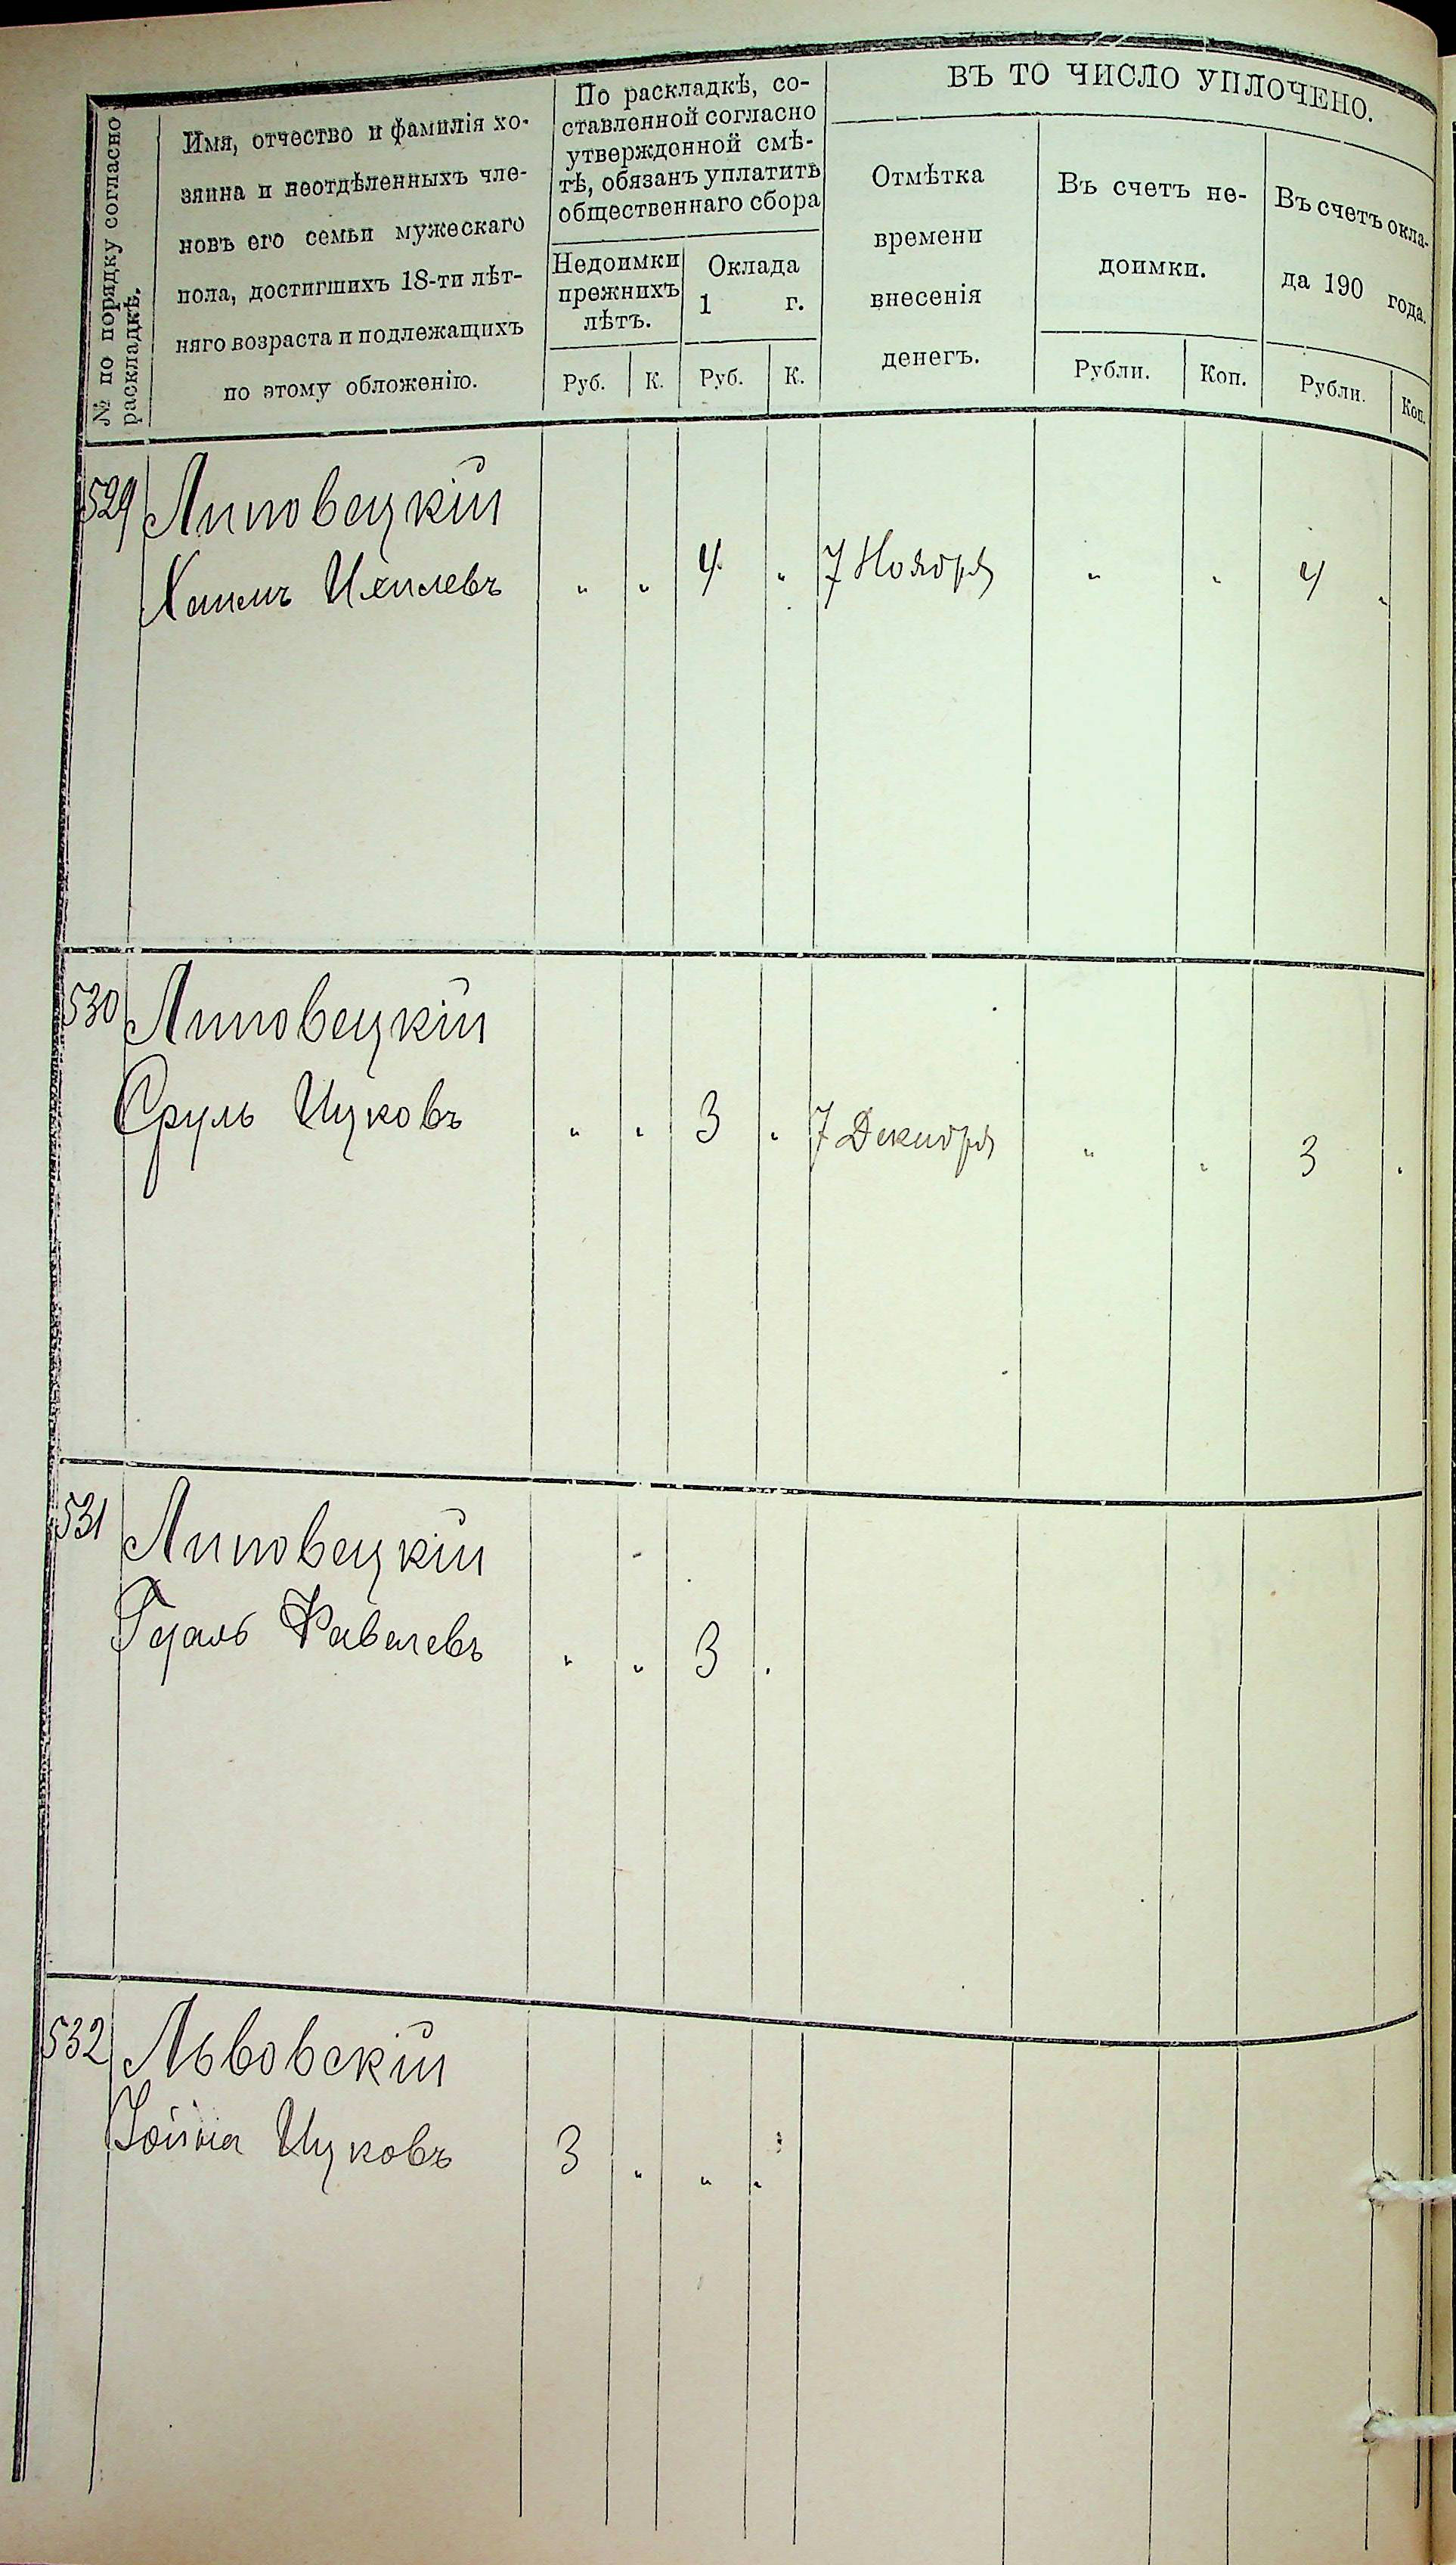 № по порядку согласно
раскладкѣ.
Имя, отчество и фамилія хо-
зяина и неотдѣленныхъ чле-
новъ его семьи мужескаго
пола, достигшихъ 18-ти лѣт-
няго возраста и подлежащихъ
по этому обложенію.
По раскладкѣ, со-
ставленной согласно
утвержденной смѣ-
тѣ, обязанъ уплатить
общественнаго сбора
Недоимки
прежнихъ
лѣтъ.
Оклада
1 г.
Руб. К. Руб. К.
ВЪ ТО ЧИСЛО УПЛОЧЕНО.
Отмѣтка
времени
внесенія
денегъ.
Въ счетъ не-
доимки.
Рубли. Коп.
Въ счетъ окла-
да 190 года.
Рубли. Коп.
529 Липовецкій
Хаимъ " " 4 " 7 Ноября " " 4 "
530 Липовецкій
Сруль Ицковъ " " 3 " 7 Декабря " " 3 "
531 Липовецкій
" " 3 "
532 Львовскій
Іойна Ицковъ 3 " " "